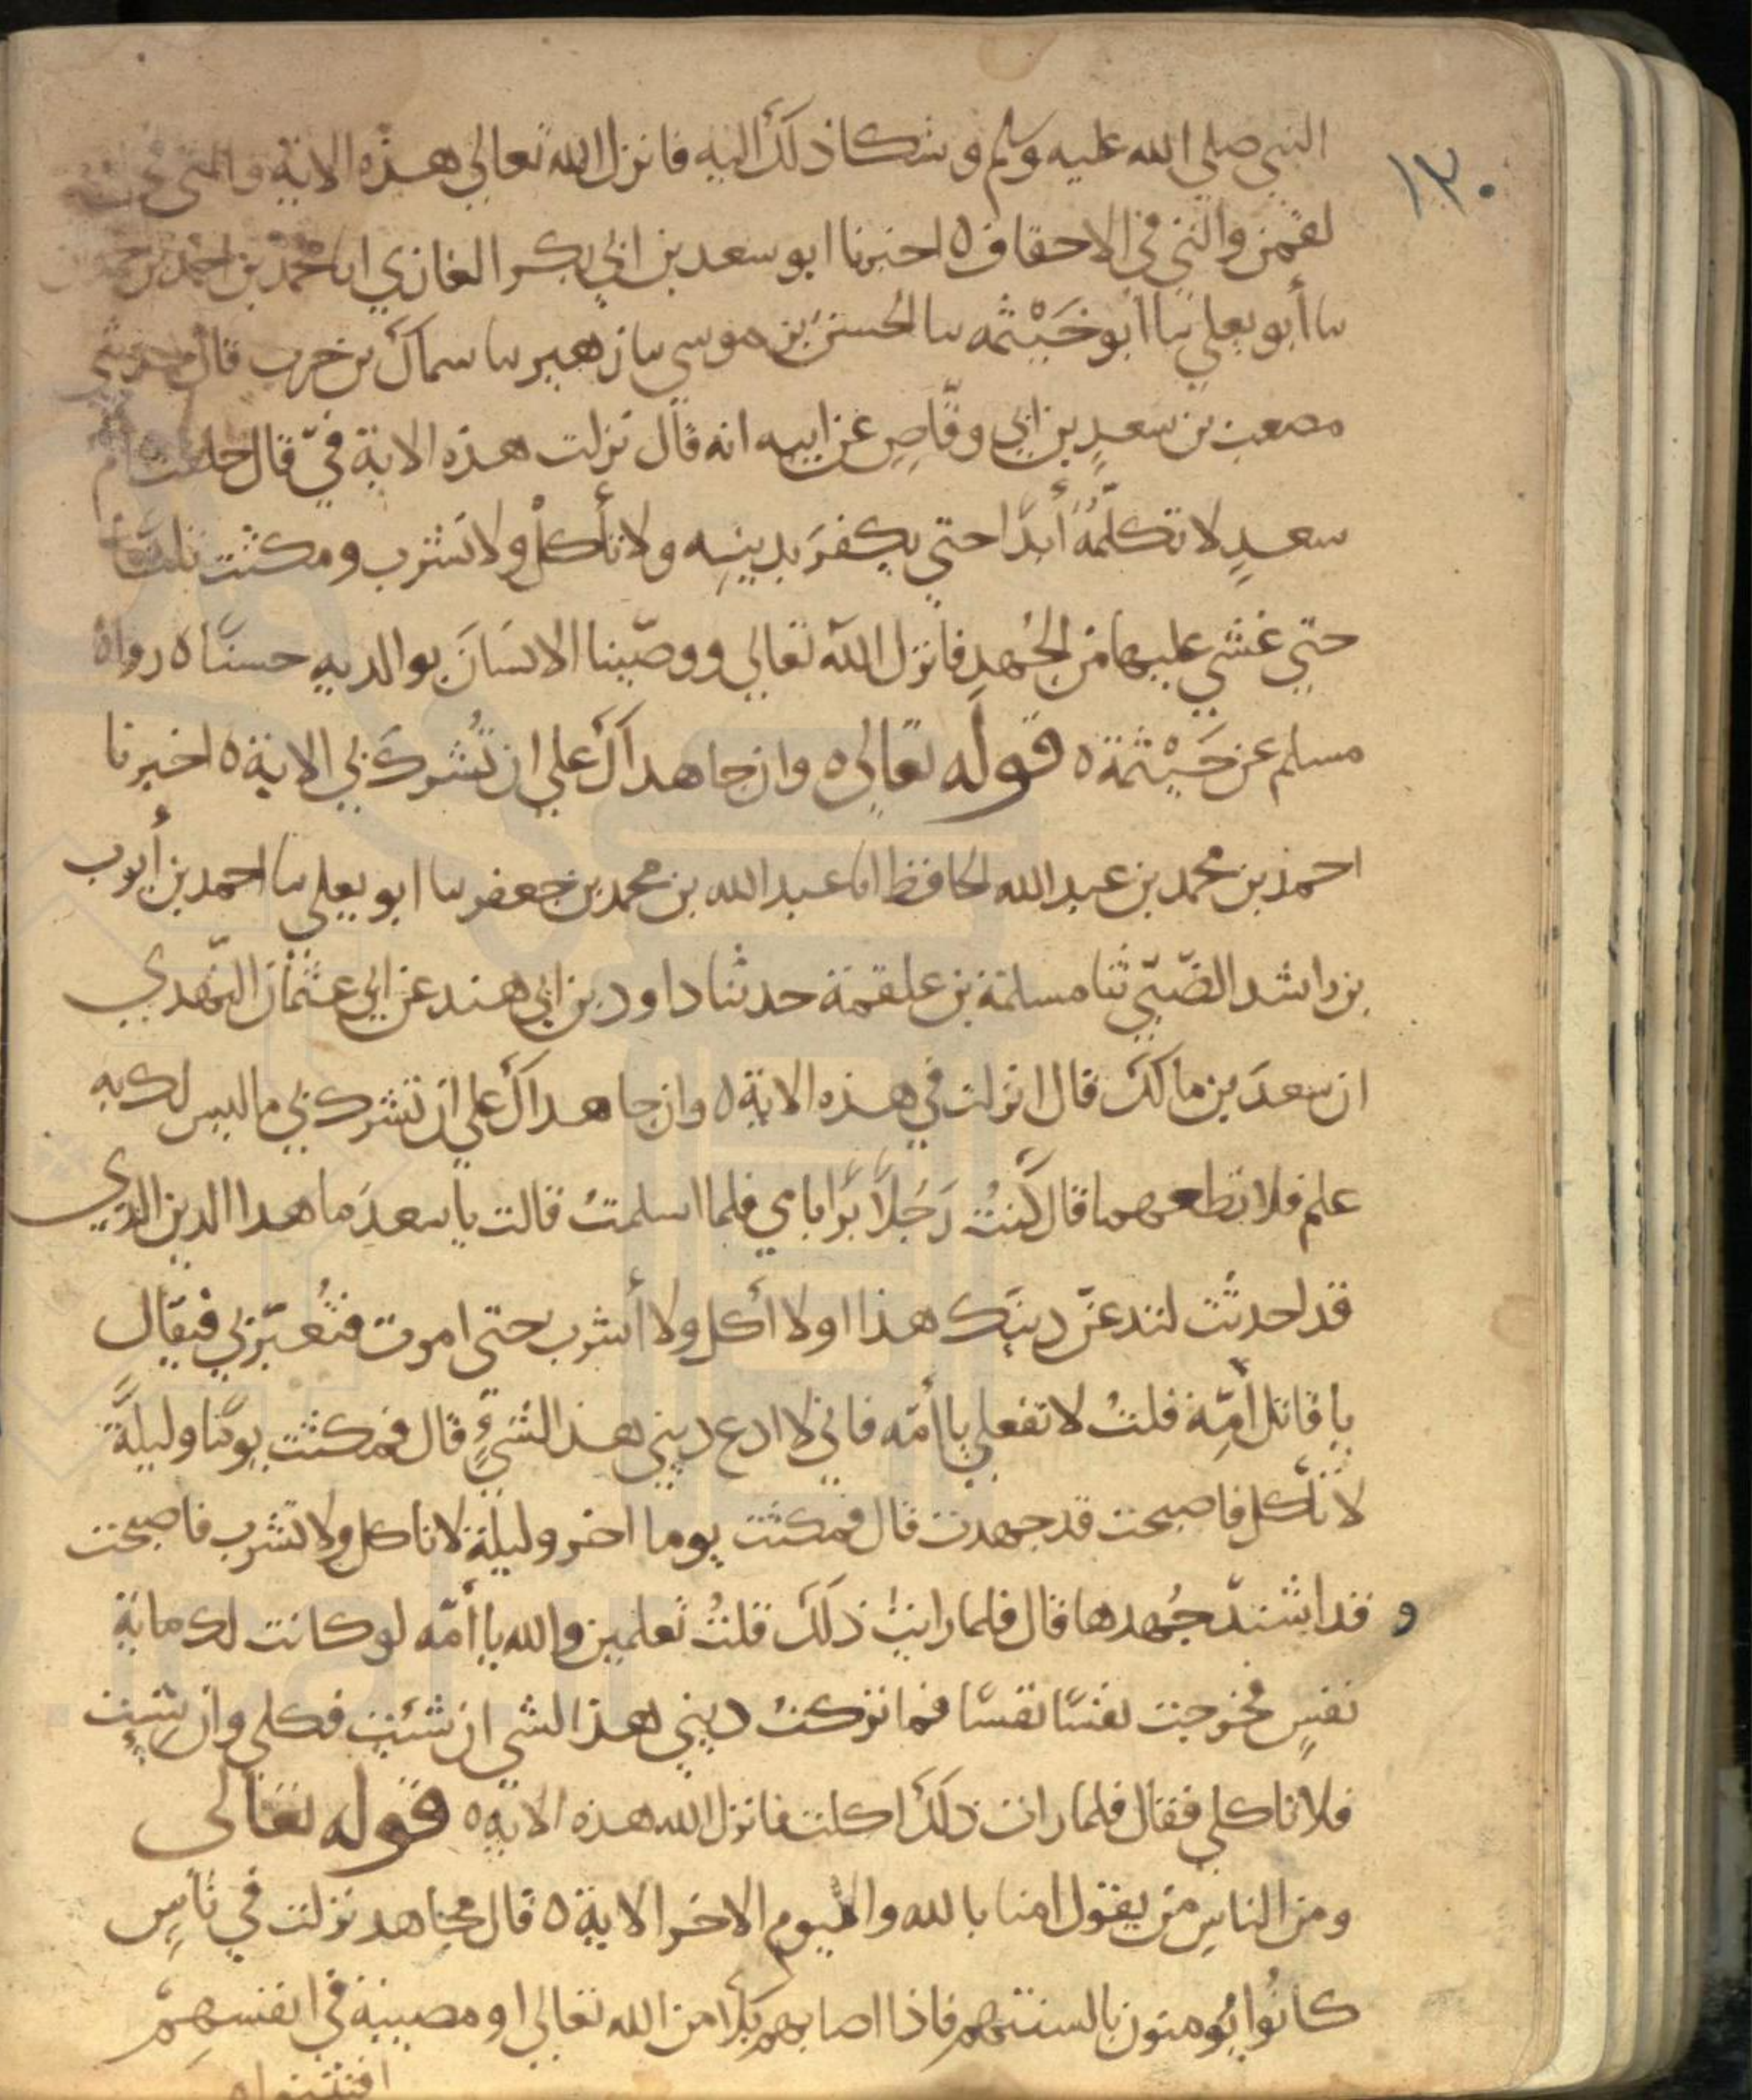 ١٣٠
النبي صلي الله عليه وسلم وشكا ذلك اليه فانزل الله تعالي هذه الاية والتي في
لقمن والتي في الاحقاف ٥ اخبرنا ابو سعد بن ابي بكر الغازي انا محمد بن احمد بن حمدان
نا أبو يعلي نا أبو خَيْثمه نا الحسن بن موسي نا زهير نا سماك بن حرب قال حدثني
مصعب بن سعدٍ بن ابي وقّاصٍ عن ابيه انه قال نزلت هذه الاية فيّ قال حلفت ام
سعدٍ لا تكلّمُه أبدًا حتي يكفرَ بدينِه ولا تأكلُ ولا تشرب ومكثت ثلثا
حتي غشي عليها من الجُهدِ فانزل الله تعالي ووصّينا الانسَانَ بوالديهِ حسنًا ٥ رواه
مسلم عن خَيْثمة ٥ قوله تعالي ٥ وان جاهداك علي ان تُشرك بي الاية ٥ اخبرنا
احمد بن محمد بن عبد الله الحافظ انا عبد الله بن محمد بن جعفر نا ابو يعلي نا احمد بن أيوب
بن راشد الضّبّي ثنا مسلمة بن علقمة حدثنا داود بن ابي هند عن ابي عثمان النّهدي
ان سعدَ بن مالك قال انزلت في هذه الاية ٥ وان جاهداك علي ان تشرك بي ما ليس لك به
علم فلا تطعهما قال كُنتُ رَجُلًا بَرًا بامي فلما اسلمتُ قالت يا سعدَ ما هدا الدين الذي
قد احدثت لتدعنّ دينك هذا او لا اكل ولا أشرب حتي اموت فتُعيّر بي فيقال
يا قاتل أُمّهِ قلتُ لا تفعلي يا أمّه فاني لا ادع ديني هذا لشيءٍ قال فمكثت يومًا وليلةً
لا تأكل فاصبحت قد جهدت قال فمكثت يوما اخر وليلة لا تاكل ولا تشرب فاصبحت
و قد اشتدّ جُهدها قال فلما رايتُ ذلك قلتُ تعلمين والله يا أمّه لو كانت لك ماية
نفسٍ فخرجت نفسًا نفسًا فما تركتُ ديني هذا لشي ان شئتِ فكلي وان شيت
فلا تاكلي فقال فلما رات ذلك اكلت فانزل الله هذه الاية ٥ قوله تعالي
ومن الناسِ من يقول امنا بالله واليوم الاخر الاية ٥ قال مجاهد نزلت في ناسٍ
كانُوا يُومنون بالسنتهم فاذا اصابهم بَلاءٌ من الله تعالي او مصيبة في انفسهم
افتتنوا ٥